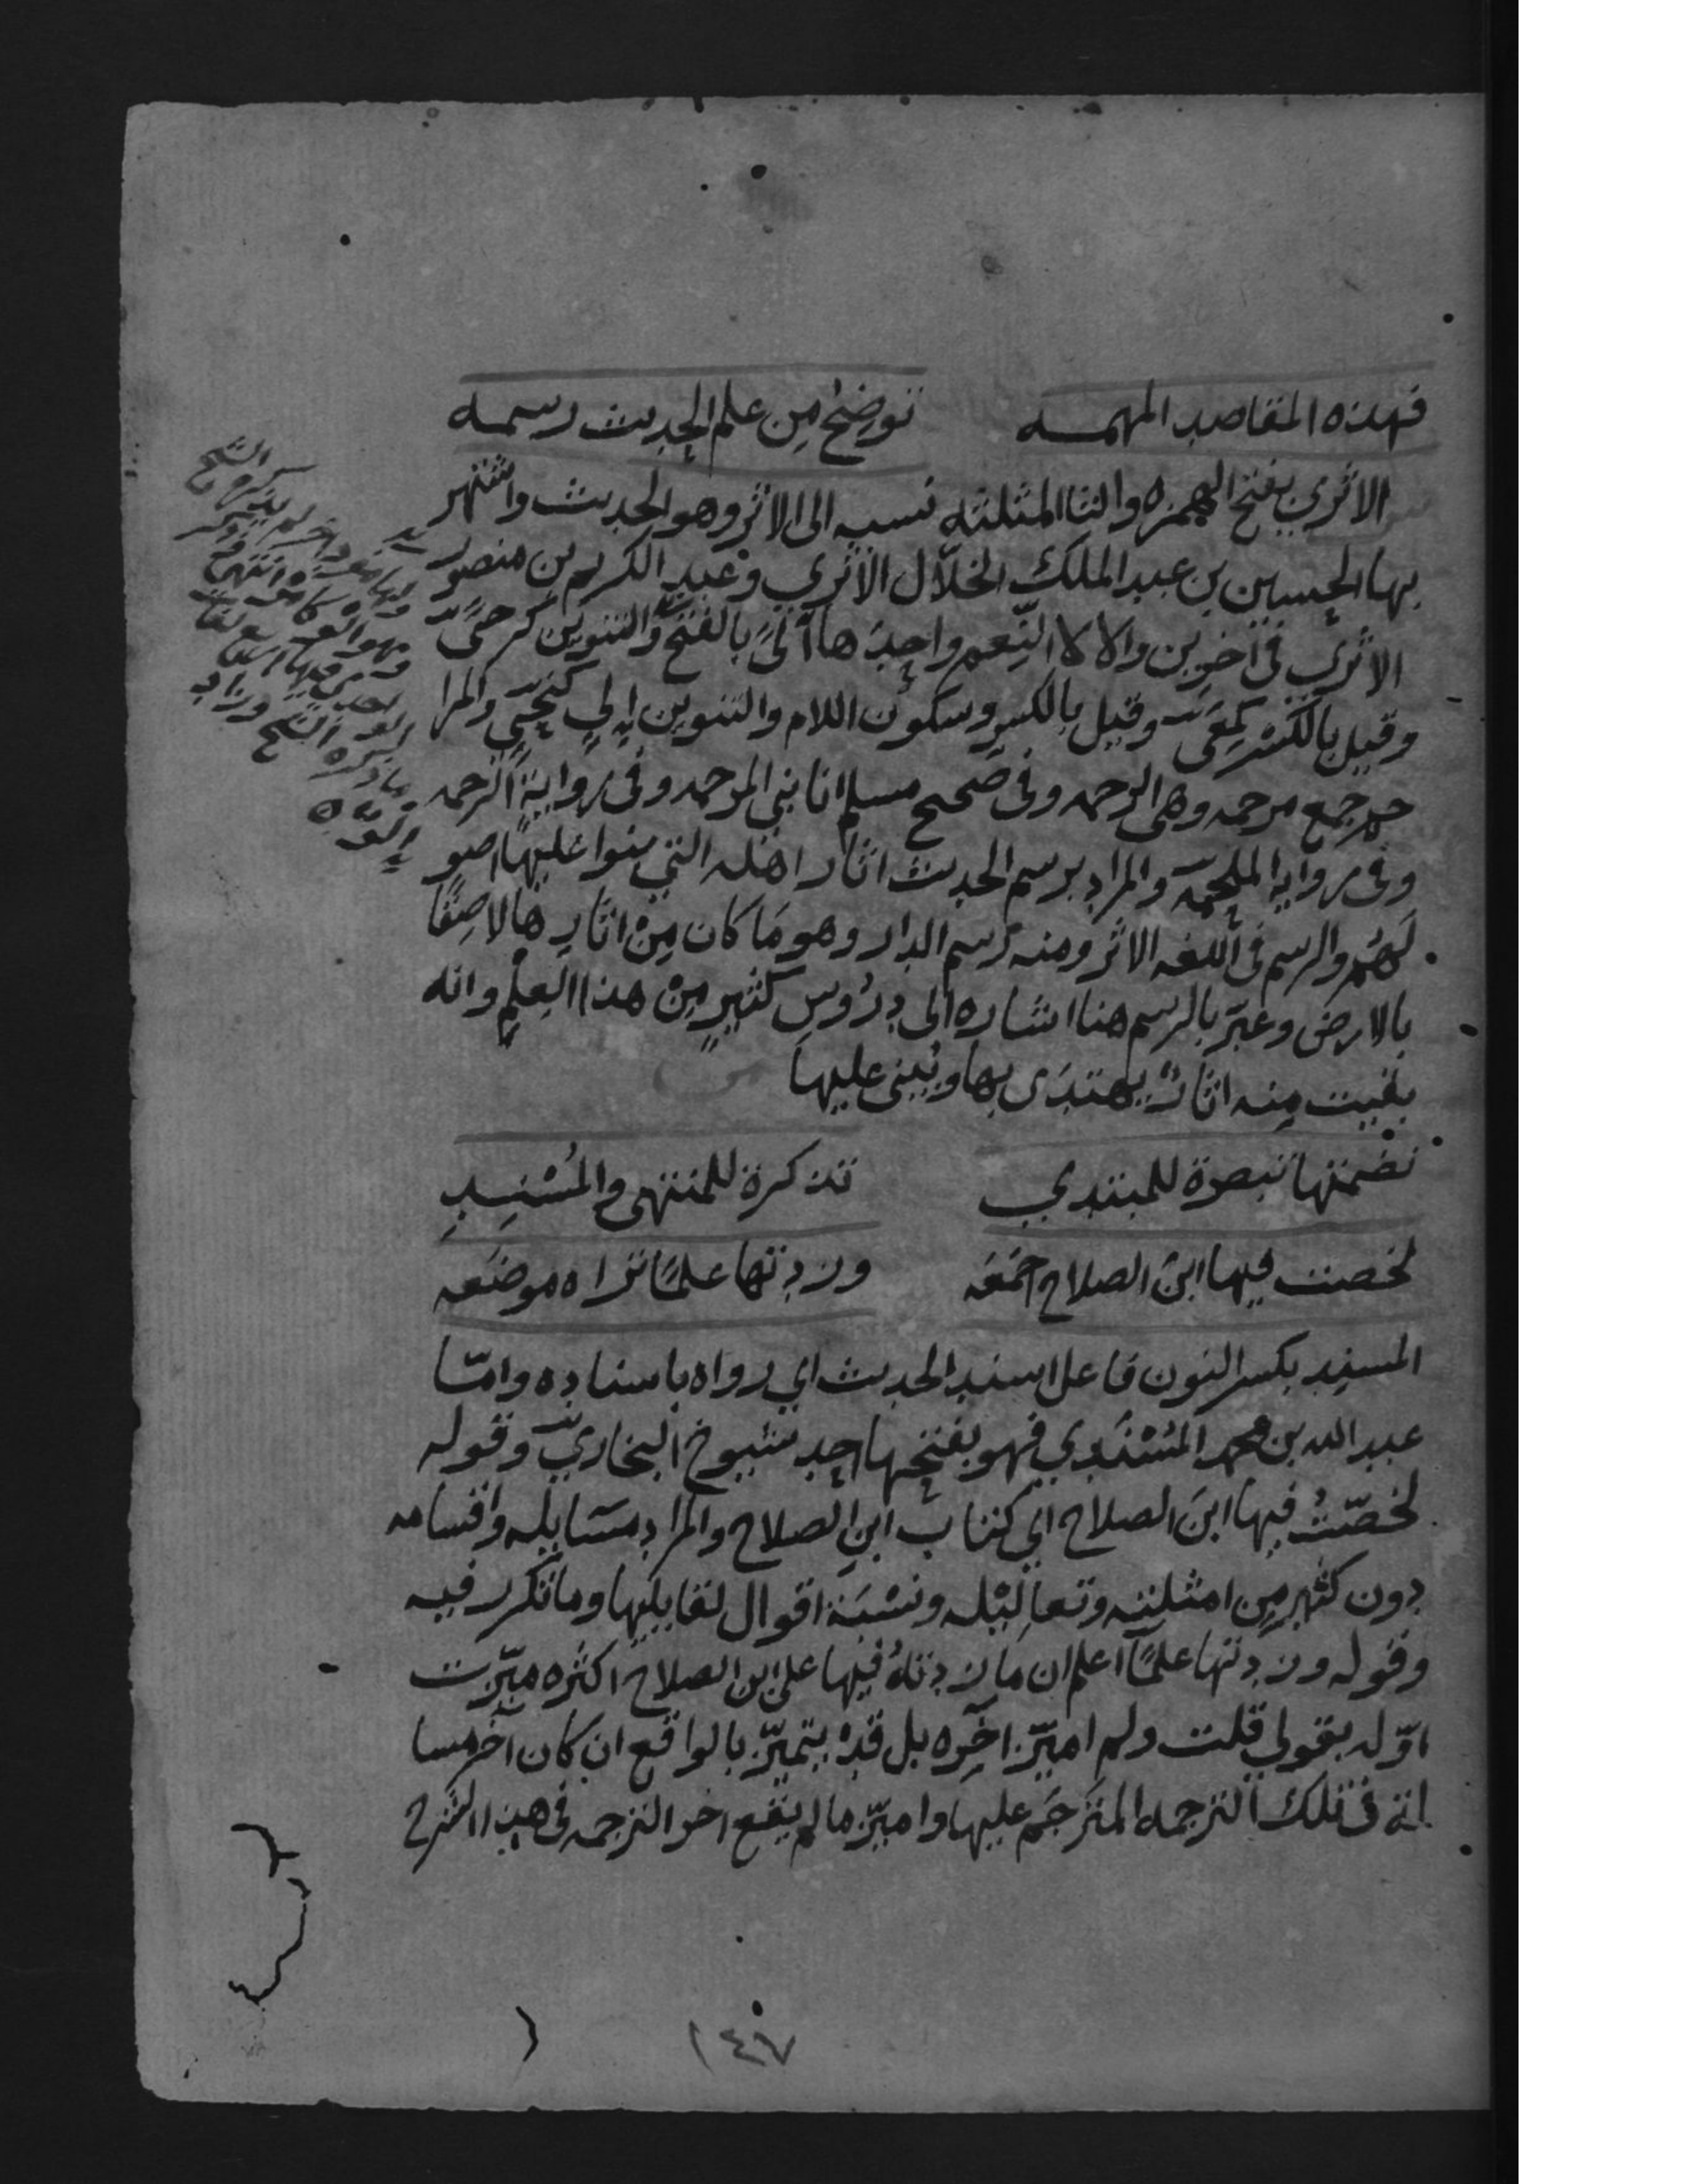 فهذه المقاصد المهمه توضح من علم الحديث رسمه
الاثري بفتح الهمزه والثا المثلثه نسبه الى الاثر وهو الحديث واشتهر
بها الحسين بن عبد الملك الخلّال الاثري وعبد الكريم بن منصور
الاثري في اخرين والالا النِّعم واحدها ألىً بالفتح والتنوين كرحىً
وقيل بالكسر كمعىً وقيل بالكسر وسكون اللام والتنوين إلي كنحيٍ والمرا
حم جمع مرحمه وهي الرحمه وفي صحيح مسلم انا نبي المرحمه وفي رواية الرحمه
وفي روايه الملحمة والمراد برسم الحديث اثار اهله التي بنوا عليها اصو
لَهُم والرسم في اللغه الاثر ومنه رسم الدار وهو مَا كان مِنْ اثارِها لاصِقًا
بالارض وعبّر بالرسم هنا اشاره الى دُرُوس كثيرٍ مِنْ هذا العِلْمِ وانه
بقيت مِنه اثارٌ يهتدَى بها ويُبنى عليها
نضمتها تبصرة للمبتدي تذكرة للمنتهى والمُسْنِدِ
لخصت فيها ابنَ الصلاح اجمَعَه وزدتها علمًا تراه موضَعه
المسنِد بكسر النون فاعل اسند الحديث اي رواه باسناده وامّا
عبد الله بن محمد المُسْنَدي فهو بفتحها احد شيوخ البخاريّ وقوله
لخصّتُ فيها ابنَ الصلاح اي كتاب ابنِ الصلاح والمراد مسَايله واقسامه
دون كثير مِن امثلته وتعاليْله ونسْبَة اقوال لقايليها وما تكرر فيه
وقوله وزدتها علمًا اعلم ان ما زدتهُ فيها على ابن الصلاح اكثره ميّزت
اوّله بقولي قلت ولم اميّز اخِره بل قدْ يتميّز بالواقع ان كان آخر مسا
لة في تلك الترجمه المترجَم عليها واميّز ما لم يقع اخر الترجمه في هذا الشرح
١٤٧